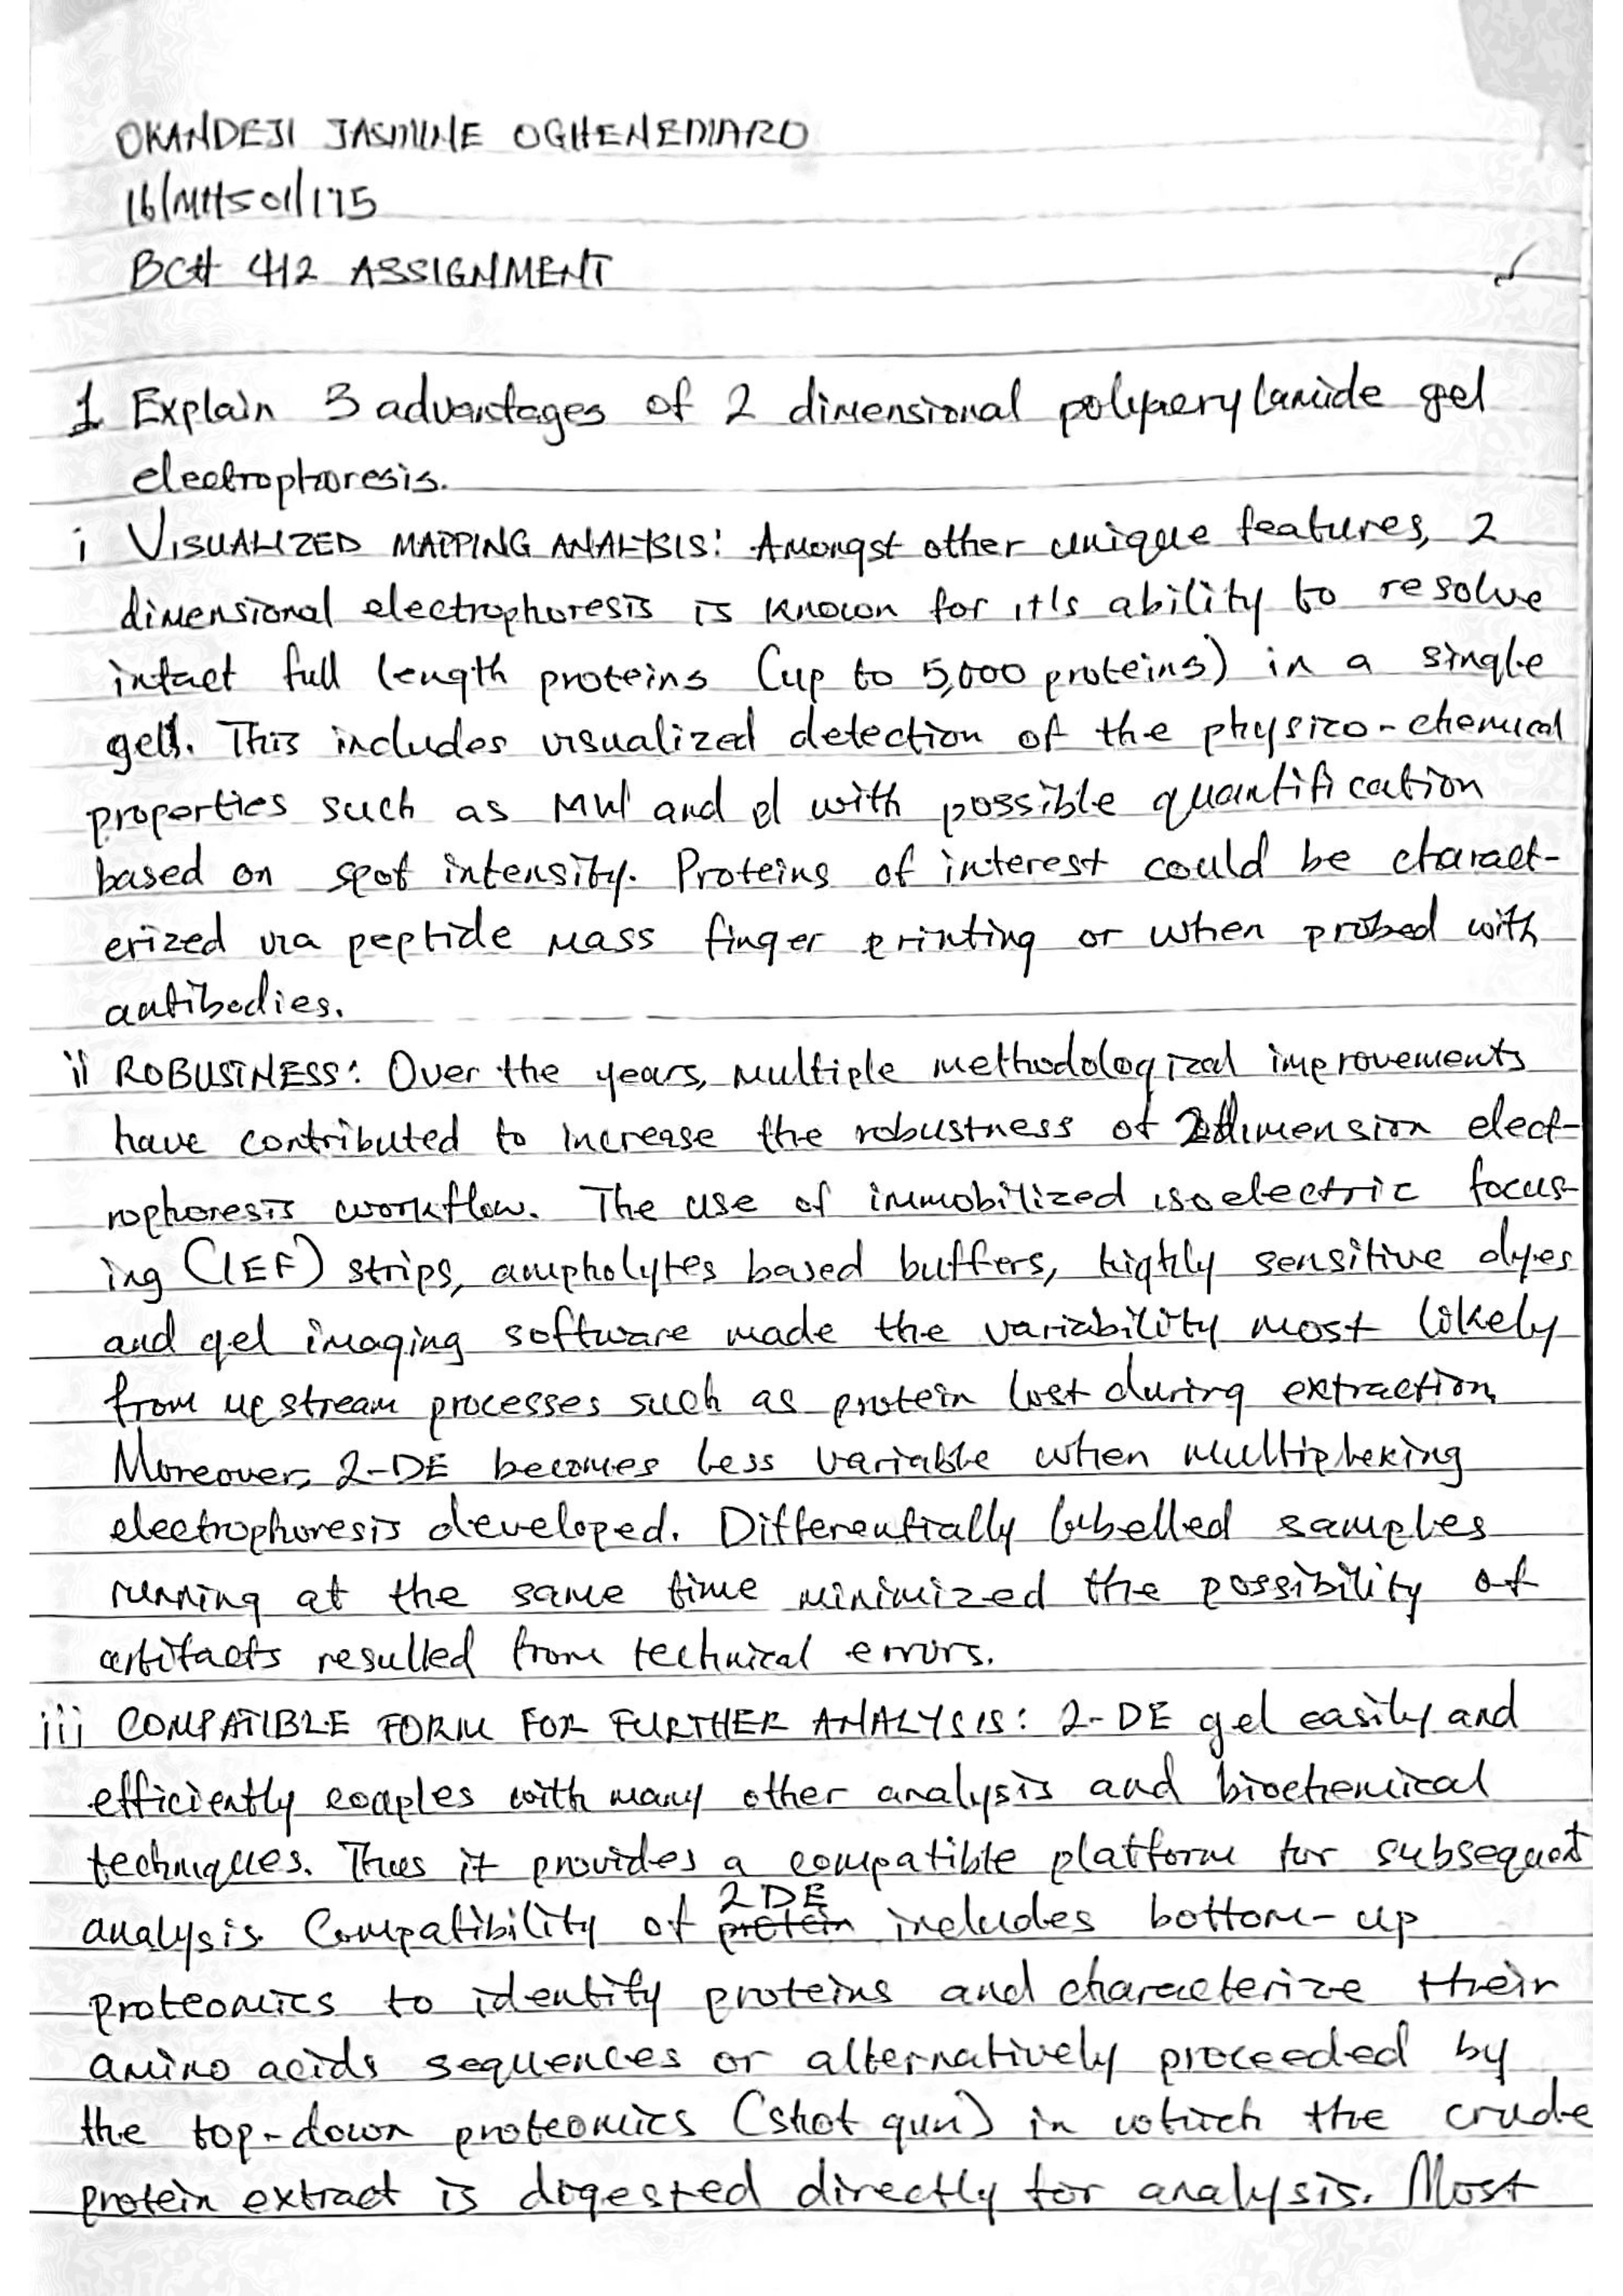 OKANDEJI JASMINE OGHENEMARO
16/MHS01/175
BCH 412 ASSIGNMENT
1 Explain 3 advantages of 2 dimensional polyacrylamide gel
electrophoresis.
i VISUALIZED MAPPING ANALYSIS: Amongst other unique features, 2
dimensional electrophoresis is known for it's ability to resolve
intact full length proteins (up to 5,000 proteins) in a single
gel. This includes visualized detection of the physico-chemical
properties such as MW and pI with possible quantification
based on spot intensity. Proteins of interest could be charact-
erized via peptide mass finger printing or when probed with
antibodies.
ii ROBUSTNESS: Over the years, multiple methodological improvements
have contributed to increase the robustness of 2dimension elect-
rophoresis workflow. The use of immobilized isoelectric focus-
ing (IEF) strips, ampholytes based buffers, highly sensitive dyes
and gel imaging software made the variability most likely
from upstream processes such as protein lost during extraction.
Moreover, 2-DE becomes less variable when multiplexing
electrophoresis developed. Differentially labelled samples
running at the same time minimized the possibility of
artifacts resulled from technical errors.
iii COMPATIBLE FORM FOR FURTHER ANALYSIS: 2-DE gel easily and
efficiently couples with many other analysis and biochemical
techniques. Thus it provides a compatible platform for subsequent
analysis. Compatibility of protein 2DE includes bottom-up
proteomics to identify proteins and characterize their
amino acids sequences or alternatively proceeded by
the top-down proteomics (shot gun) in which the crude
protein extract is digested directly for analysis. Most